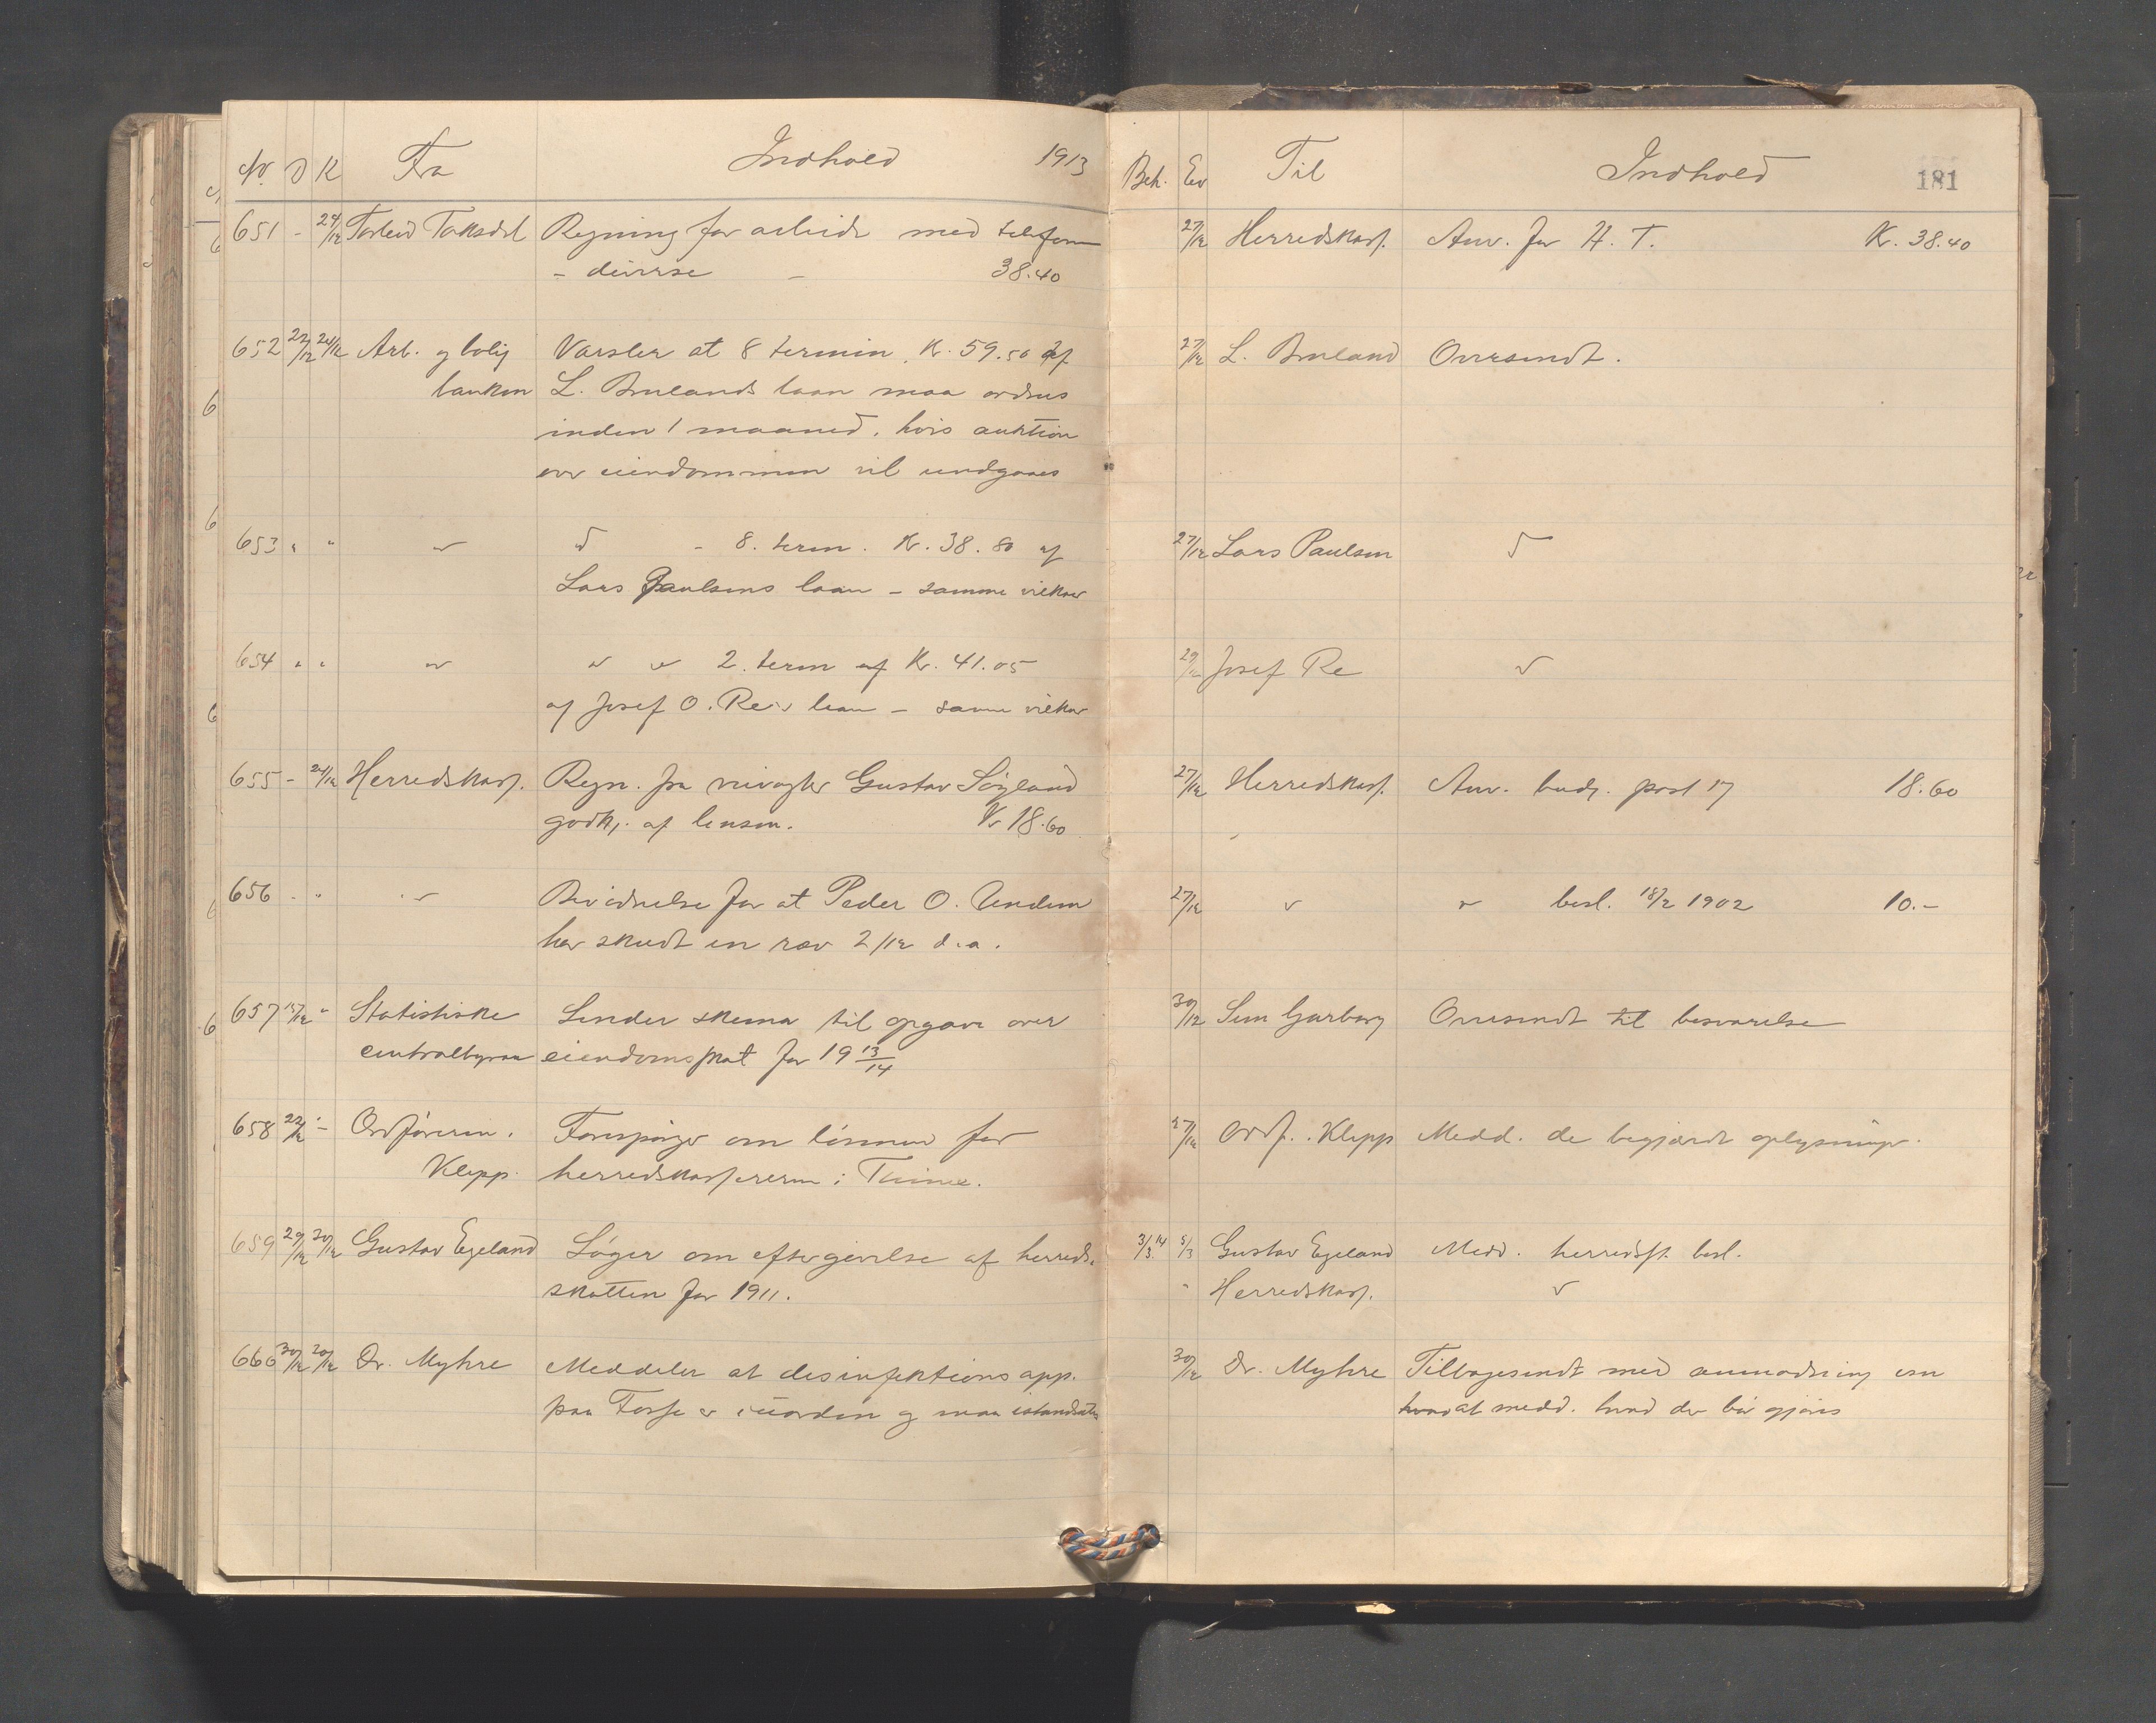 No. D K Fra Indhold 1913
651 - 24/12 Torleiv Taksdal Regning for arbeide med telefonen
- diverse - 38.40
652 22/12 24/12 Arb. og bolig Varsler at 8 termin, Kr. 59.50 af
banken L. Bruelands laan maa ordnes
inden 1 maaned, hvis auktion
over eiendommen vil undgaaes
653 " " " " - 8. term. Kr. 38.80 af
Lars Paulsens laan - samme vilkaar
654 " " " " " 2. term af Kr. 41.05
af Josef O. Re's laan - samme vilkaar
655 - 24/12 Herredskass. Regn. fra veivogter Gustav Søyland
godkj. af lensm. Kr 18.60
656 - " " Bevidnelse for at Peder O. Undem
har skudt en ræv 2/12 d.a.
657 15/12 " Statistiske Sender skema til opgave over
centralbyraa eiendomsskat for 19 13/14
658 22/12 - Ordføreren. Forespørger om lønnen for
Klepp. herredskassereren i Thime.
659 29/12 30/12 Gustav Egeland Søger om eftergivelse af herreds-
skatten for 1911.
660 30/12 30/12 Dr. Myhre Meddeler at desinfektions app.
paa Tosse er i uorden og maa istandsættes
Beh. Exp Til Indhold 181
27/12 Herredskass. Anv. for H. T. Kr. 38.40
27/12 L. Brueland Oversendt.
27/12 Lars Paulsen "
29/12 Josef Re "
27/12 Herredskass. Anv. budg. post 17 18.60
27/12 " " besl. 18/2 1902 10.-
30/12 Sem Garborg Oversendt til besvarelse
27/12 Ordf. Klepp Medd. de begjærdte oplysninger.
3/3 14 5/3 Gustav Egeland Medd. herredsst. besl.
" Herredskass. "
30/12 Dr. Myhre Tilbagesendt med anmodning om
hvad at medd. hvad der bør gjøres